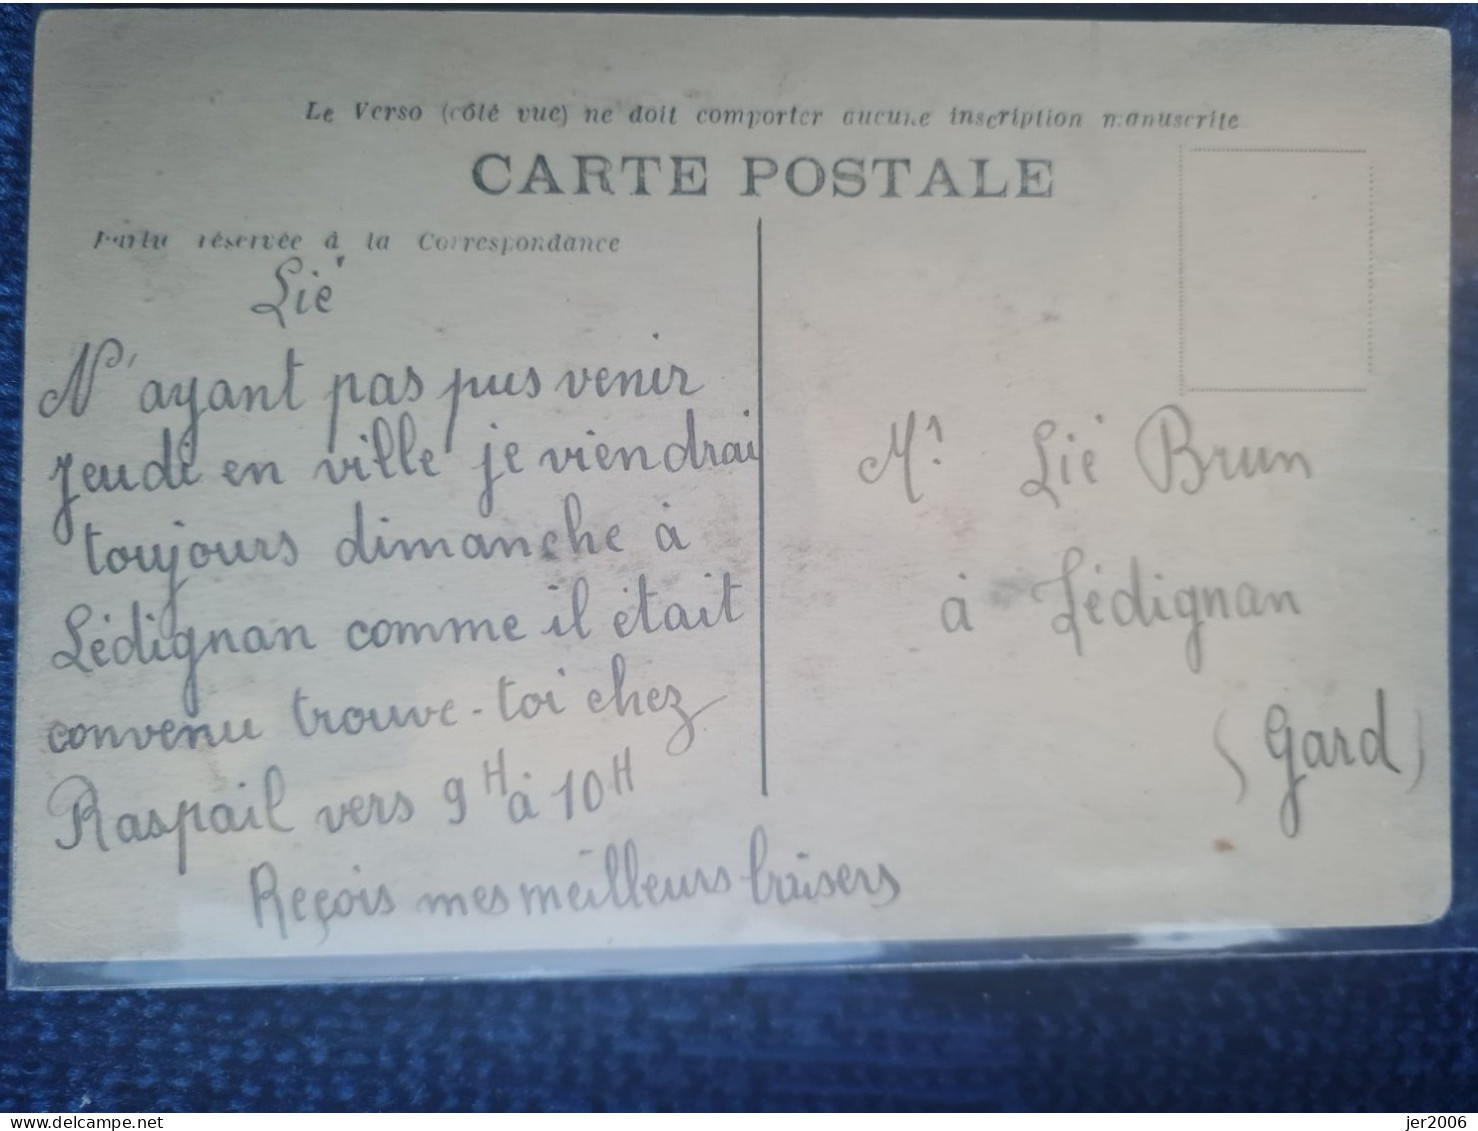 Le Verso (côté vue) ne doit comporter aucune inscription manuscrite
CARTE POSTALE
Partie réservée à la Correspondance
Lié
N'ayant pas pus venir
jeudi en ville je viendrai
toujours dimanche à
Lédignan comme il était
convenu trouve-toi chez
Raspail vers 9H à 10H
Reçois mes meilleurs baisers
Mr. Lié Brun
à Lédignan
(Gard)
delcampe.net
jer2006